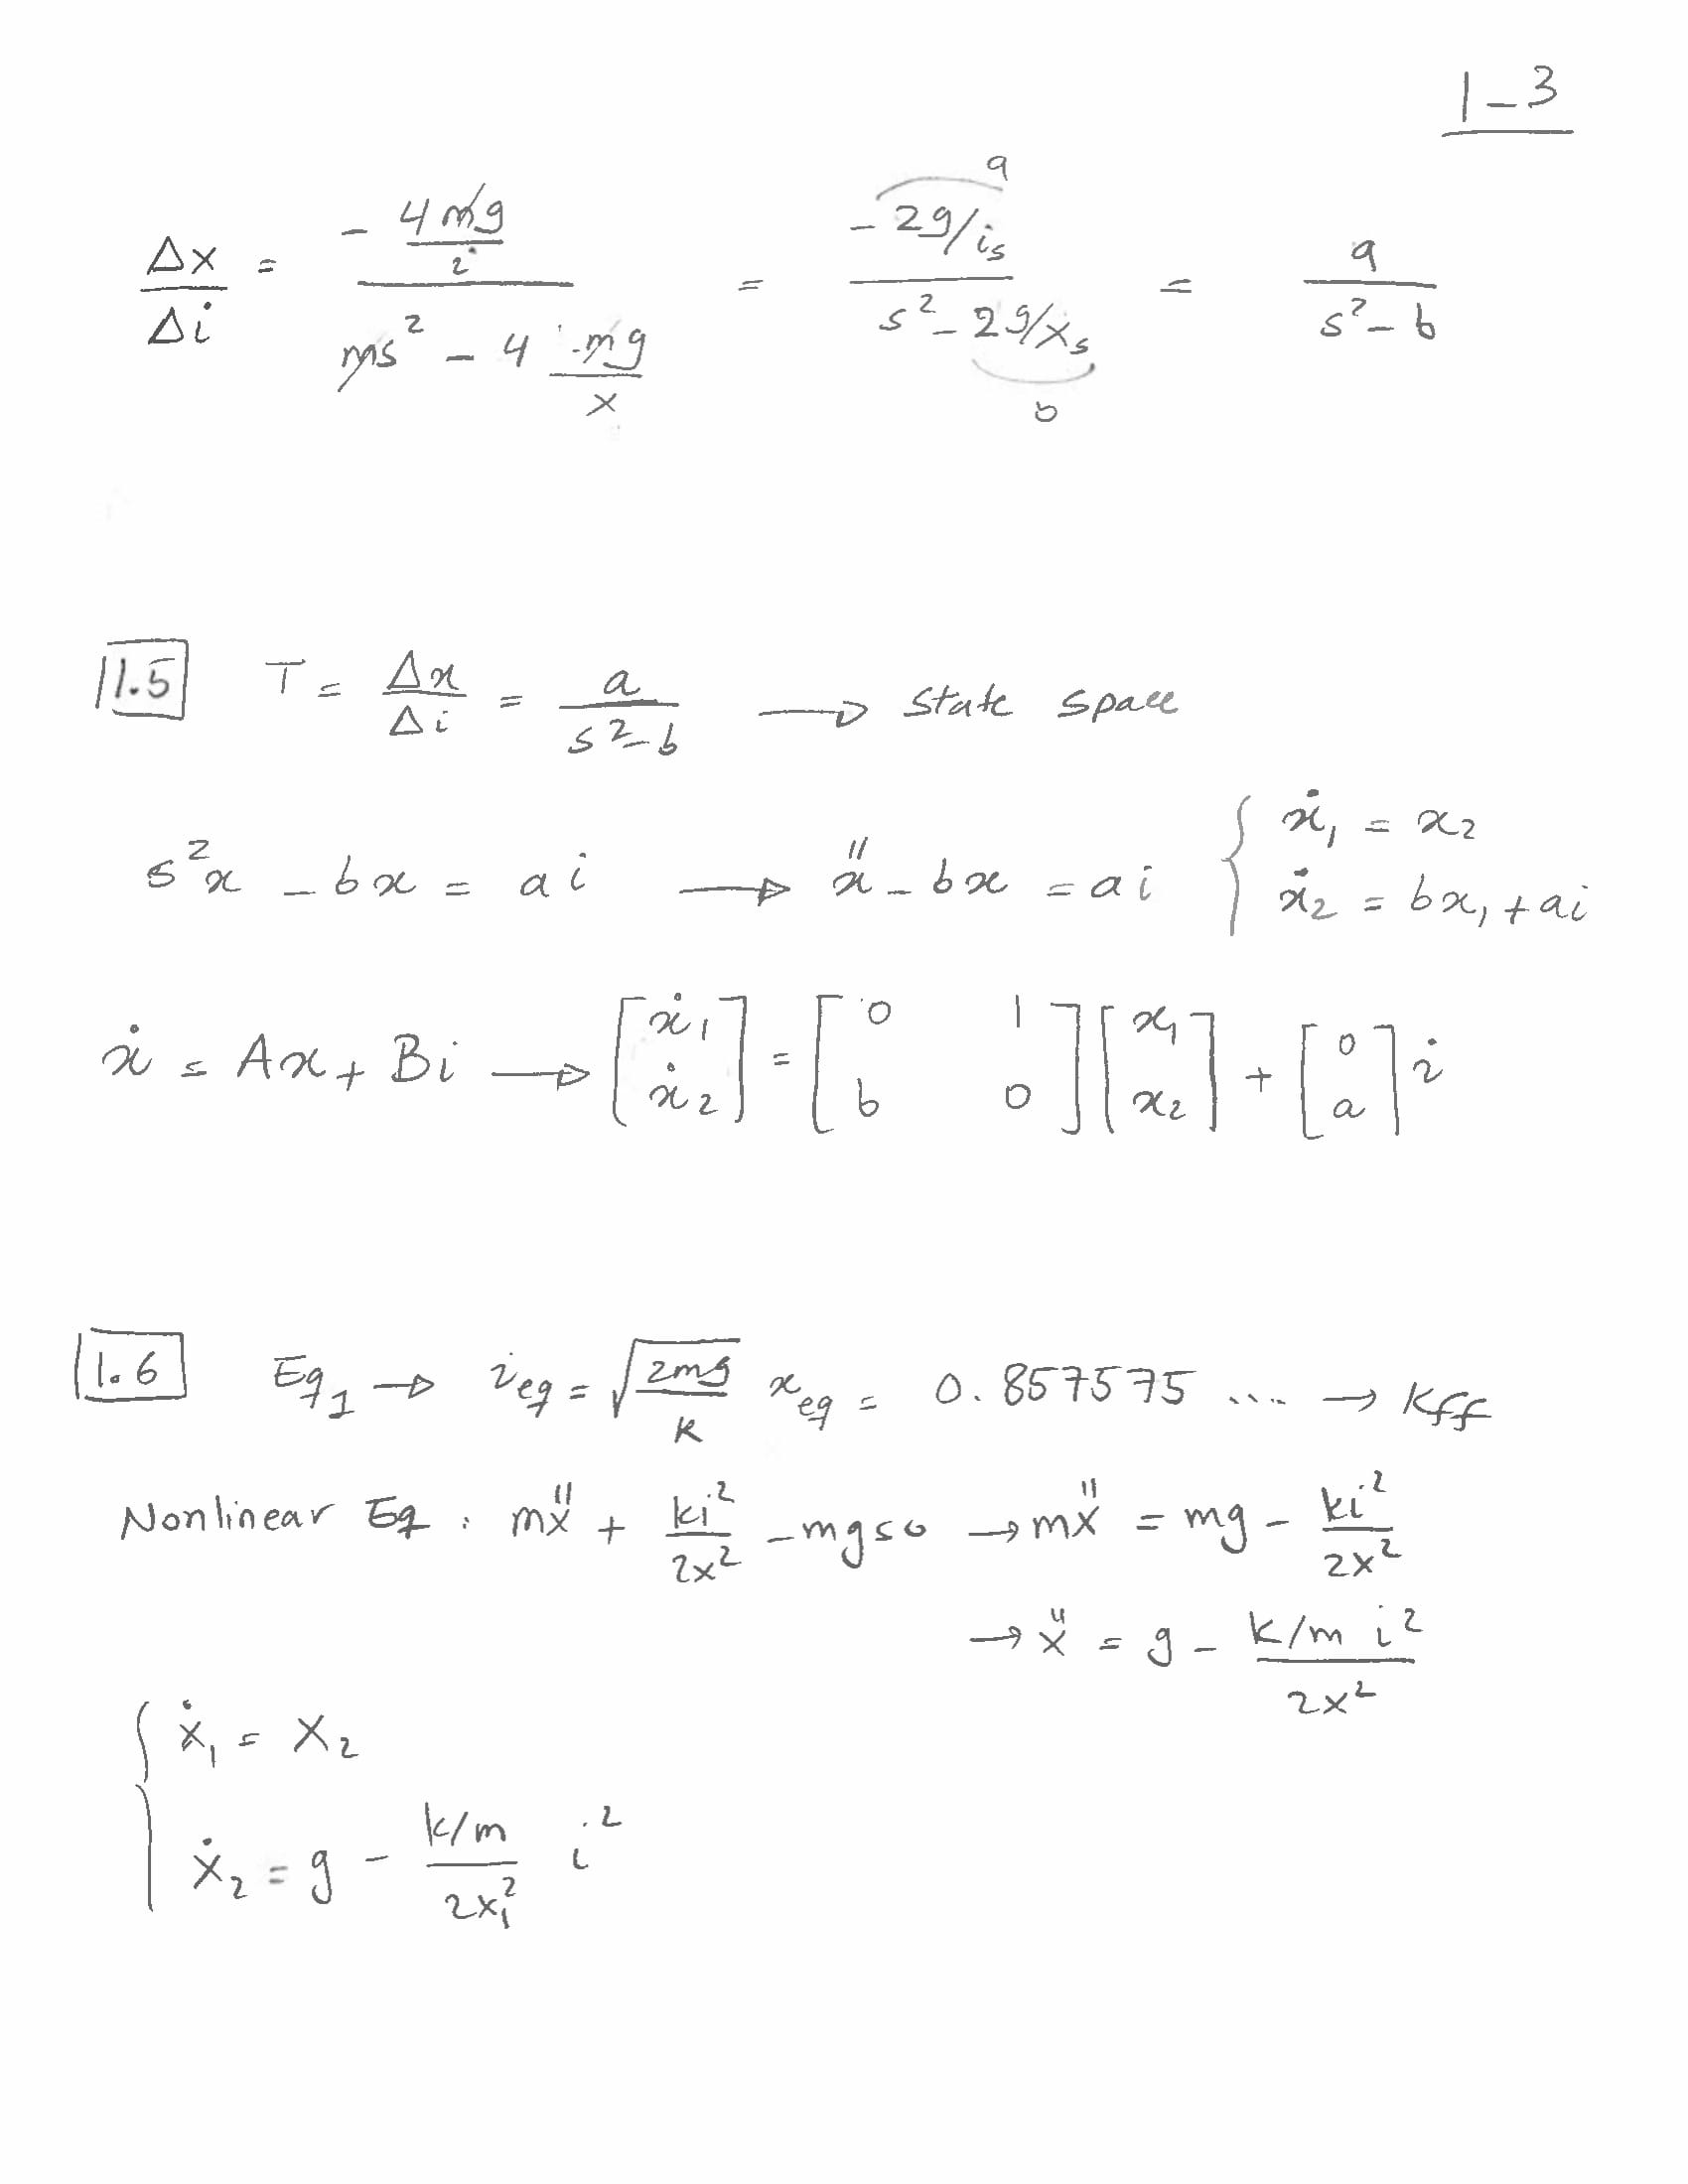 1-3
Δx/Δi = (- 4mg/i)/(ms² - 4 mg/x) = (- 2g/is)/(s² - 2g/xs) = a/(s² - b)
a
b
1.5 T = Δx/Δi = a/(s² - b) → state space
s²x - bx = ai → ẍ - bx = ai { ẋ₁ = x₂
ẋ₂ = bx₁ + ai
ẋ = Ax + Bi → [ẋ₁; ẋ₂] = [0 1; b 0] [x₁; x₂] + [0; a] i
1.6 Eq1 → ieq = √(2mg/k) xeq = 0.857575 .... → Kff
Nonlinear Eq : mẍ + ki²/2x² - mg = 0 → mẍ = mg - ki²/2x²
→ ẍ = g - (k/m i²)/2x²
{ ẋ₁ = x₂
ẋ₂ = g - (k/m)/(2x₁²) i²